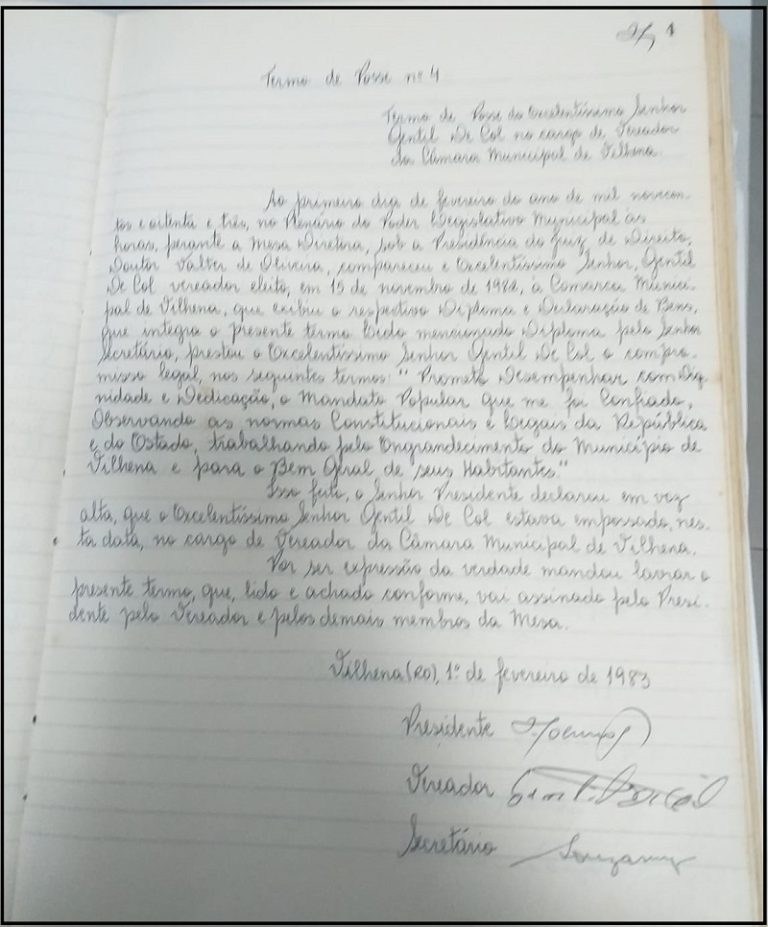 1
Termo de Posse nº 4
Termo de Posse do Excelentíssimo Senhor
Gentil De Col no cargo de Vereador
da Câmara Municipal de Vilhena.
Ao primeiro dia de fevereiro do ano de mil novecen-
tos e oitenta e três, no Plenário do Poder Legislativo Municipal às
horas, perante a Mesa Diretora, sob a Presidência do Juiz de Direito,
Doutor Valter de Oliveira, compareceu o Excelentíssimo Senhor, Gentil
De Col vereador eleito, em 15 de novembro de 1982, a Comarca Munici-
pal de Vilhena, que exibiu o respectivo Diploma e Declaração de Bens,
que integra o presente termo. Lido mencionado Diploma pelo Senhor
Secretário, prestou o Excelentíssimo Senhor Gentil De Col o compro-
misso legal, nos seguintes termos: "Prometo Desempenhar com Dig-
nidade e Dedicação, o Mandato Popular que me foi Confiado,
Observando as normas Constitucionais e Legais da República
e do Estado, trabalhando pelo Engrandecimento do Município de
Vilhena e para o Bem Geral de seus Habitantes."
Isso feito, o Senhor Presidente declarou em voz
alta, que o Excelentíssimo Senhor Gentil De Col estava empossado, nes-
ta data, no cargo de Vereador da Câmara Municipal de Vilhena.
Por ser expressão da verdade mandou lavrar o
presente termo, que, lido e achado conforme, vai assinado pelo Presi-
dente pelo Vereador e pelos demais membros da Mesa.
Vilhena (RO), 1º de fevereiro de 1983
Presidente
Vereador Gentil De Col
Secretário